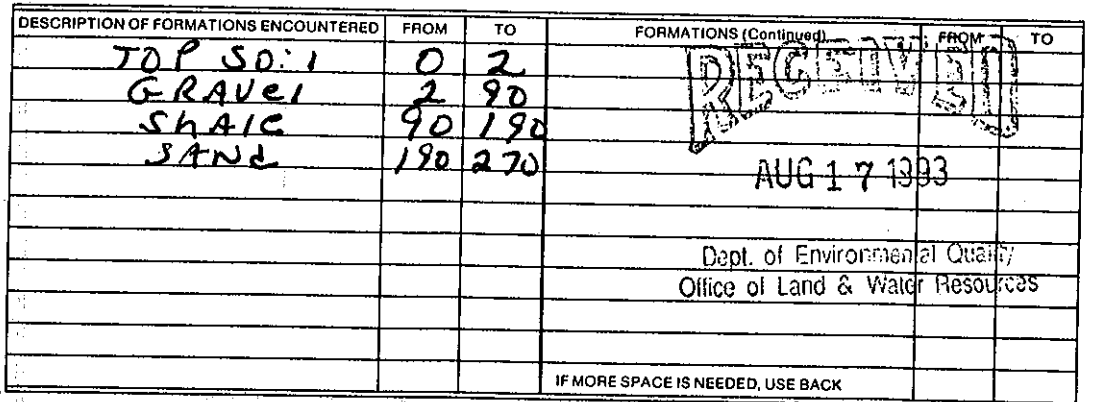 DESCRIPTION OF FORMATIONS ENCOUNTERED FROM TO FORMATIONS (Continued) FROM TO
TOP SOil 0 2
GRAVEl 2 90
ShAlE 90 190
SANd 190 270
RECEIVED
AUG 17 1993
Dept. of Environmental Quality
Office of Land & Water Resources
IF MORE SPACE IS NEEDED, USE BACK